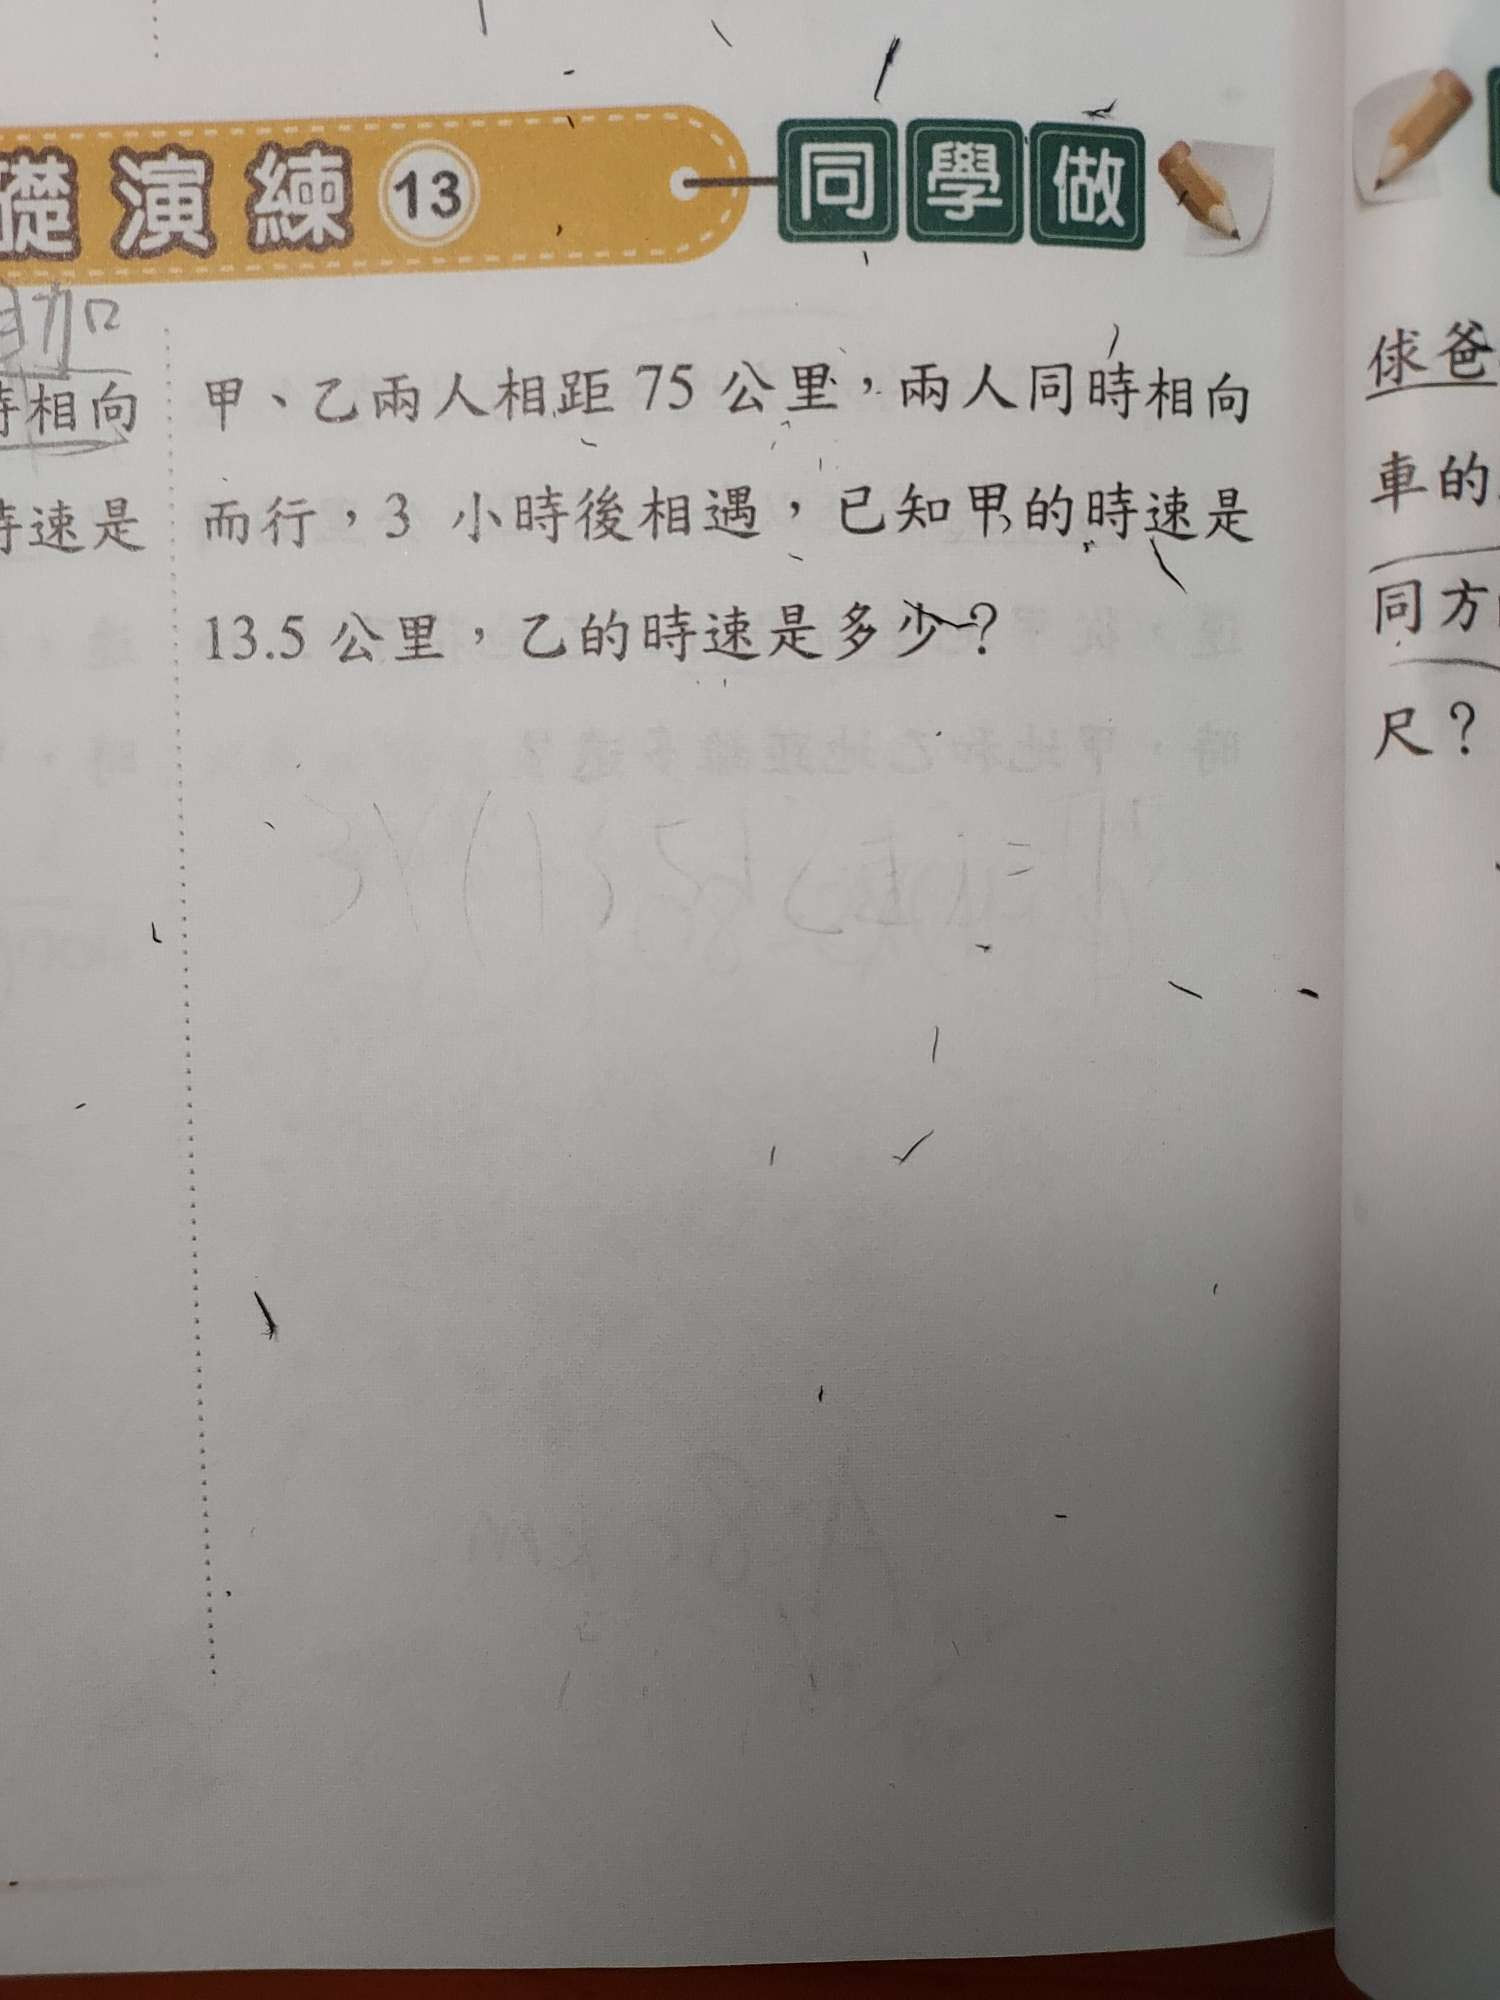 礎演練 13 同學做
加
時相向
時速是
甲、乙兩人相距 75 公里，兩人同時相向
而行，3 小時後相遇，已知甲的時速是
13.5 公里，乙的時速是多少？
爸
車的
同方
尺？